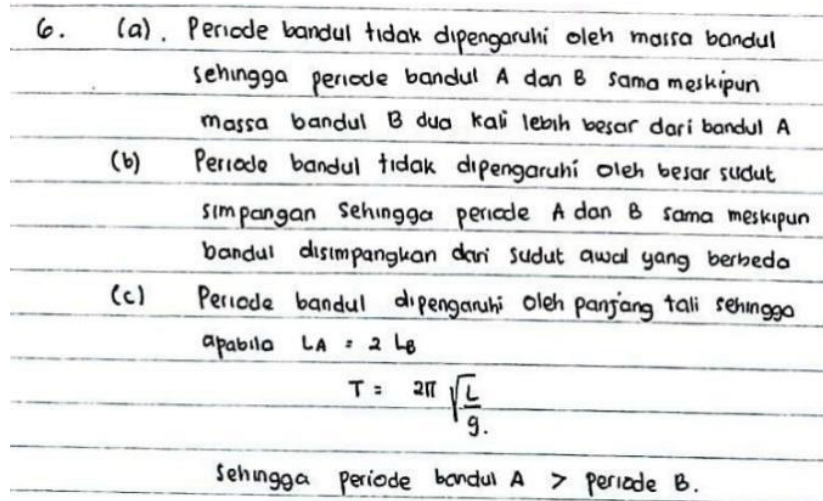 6. (a). Periode bandul tidak dipengaruhi oleh massa bandul
sehingga periode bandul A dan B sama meskipun
massa bandul B dua kali lebih besar dari bandul A
(b) Periode bandul tidak dipengaruhi oleh besar sudut
simpangan sehingga periode A dan B sama meskipun
bandul disimpangkan dari sudut awal yang berbeda
(c) Periode bandul dipengaruhi oleh panjang tali sehingga
apabila LA = 2 LB
T = 2π √(L/g).
Sehingga periode bandul A > periode B.